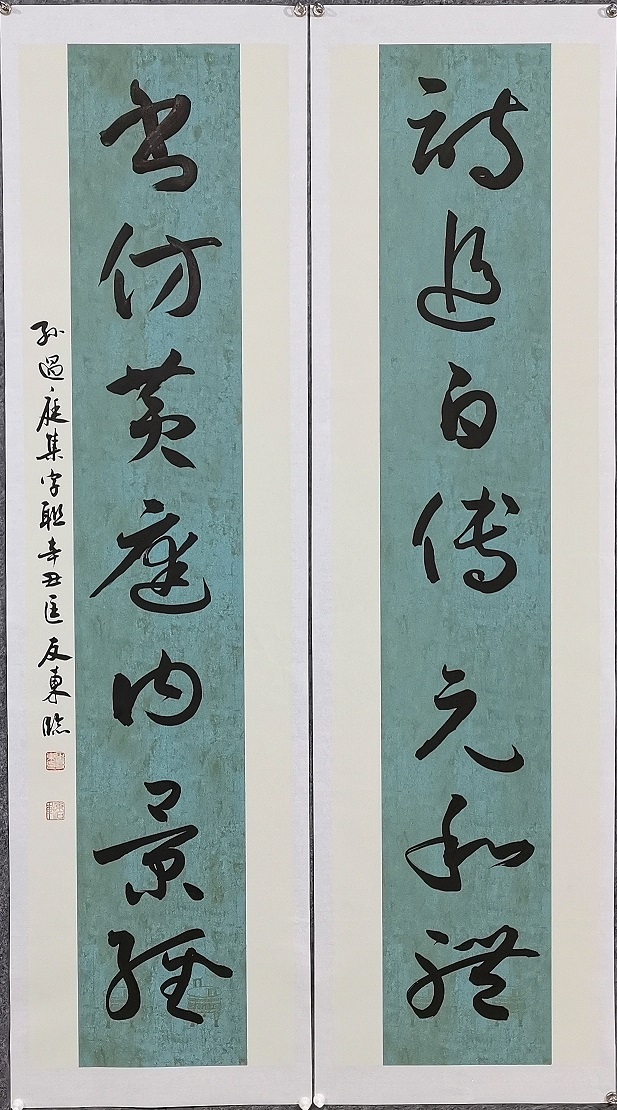 詩追白傅元和體
書仿黃庭內景經
孫過庭集字聯辛丑匡友東臨